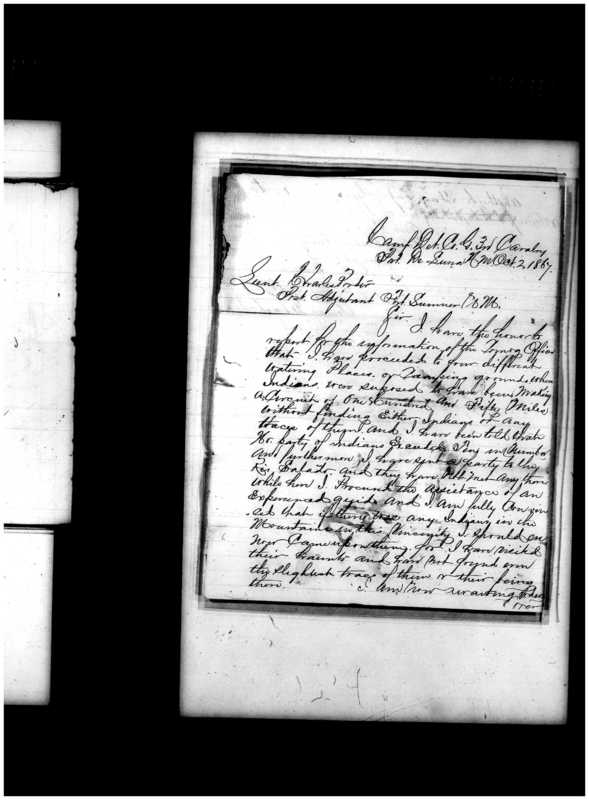 Camp Det. Co. G. 3rd Cavalry
Oct. 2, 1867.
Lieut. Charles Porter
Post Adjutant Fort Sumner N.M.
Sir. I have the honor to
report for the information of the Officer
that I have proceeded to four different
Watering Places. or Camping grounds where
Indians were suposed to have been, making
a Circuit of One Hundred and Fifty Miles
without finding Either Indians or any
traces of them and I have been told that
No. party of Indians Exceeded Ten in number
and furthermore I have sent a party to
and they have Not met any there
while here I Procured the assistance of an
Experienced guide and I am fully
that there are any Indians in the
Mountains in this I should
have Came upon them for I have visited
their haunts and have Not found even
the slightest trace of them or their being
there. I am Now awaiting